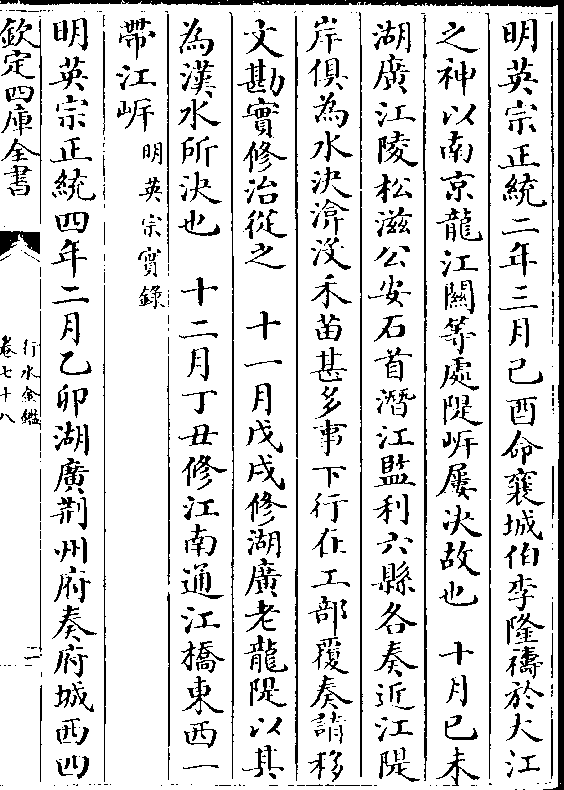 明英宗正統二年三月己酉命襄城伯李隆禱於大江
之神以南京龍江關等處隄岍屢决故也　十月己未
湖廣江陵松滋公安石首潛江監利六縣各奏近江隄
岸俱為水決渰沒禾苗甚多事下行在工部覆奏請移
文勘實修治從之　十一月戊戌修湖廣老龍隄以其
為漢水所決也　十二月丁丑修江南通江橋東西一
帶江岍明英宗實錄
明英宗正統四年二月乙卯湖廣荆州府奏府城西四
欽定四庫全書
行水金鑑
卷七十八
二